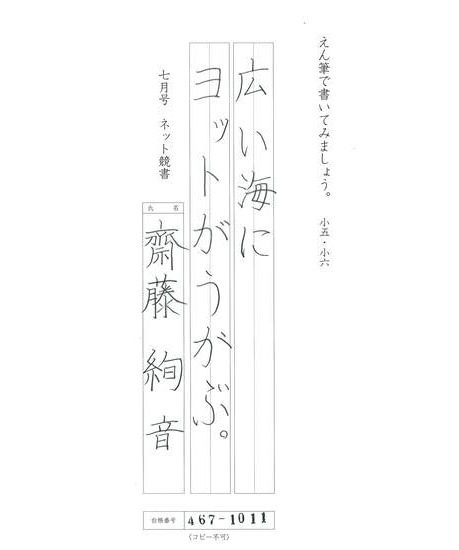 えん筆で書いてみましょう。 小五・小六
広い海に
ヨットがうかぶ。
七月号 ネット競書
氏名
齋藤 絢音
合格番号 467-1011
(コピー不可)